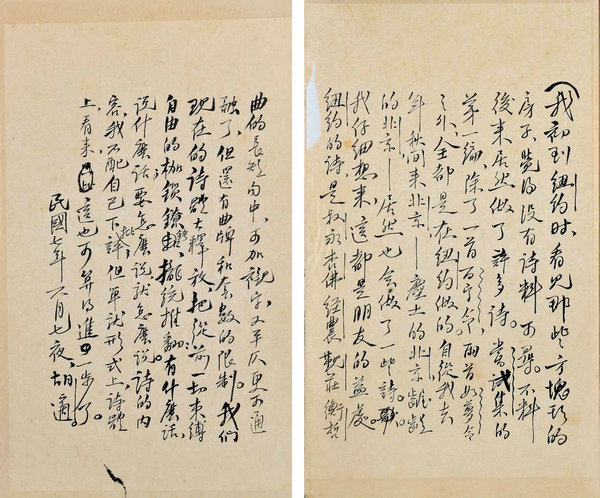 (我初到紐約時,看見那些方塊形的
房子,覺得沒有詩料可尋。不料
後來居然做了許多詩。嘗試集的
第一編,除了一首百字令,兩首如夢令
之外,全部是在紐約做的。自從我去
年秋間來北京——塵土的北京,齷齪
的北京——居然也會做了一些詩。
我仔細想來,這都是朋友的益處。
紐約的詩是叔永杏佛經農覲莊衡哲
曲的長短句中,可加襯字,又平仄更可通
融了,但還有曲牌和套數的限制。我們
現在的詩體大釋放,把從前一切束縛
自由的枷鎖鐐銬,攏統推翻,有什麽話,
說什麽話,要怎麽說就怎麽說。詩的内
容,我不配自己下批評,但單就形式上詩體
上看來,這也可算得進一步了。
民國七年六月七夜,胡適。